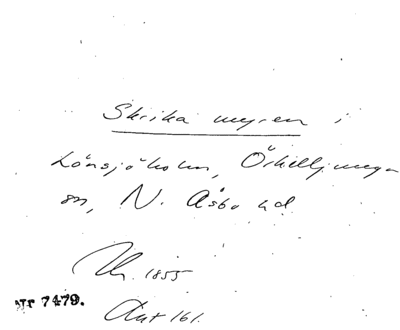 Skrika myren i
Lönsjöholm, Örkelljunga
sn, N. Åsbo hd
Uh. 1855
Nr 7479.
Ant 161.